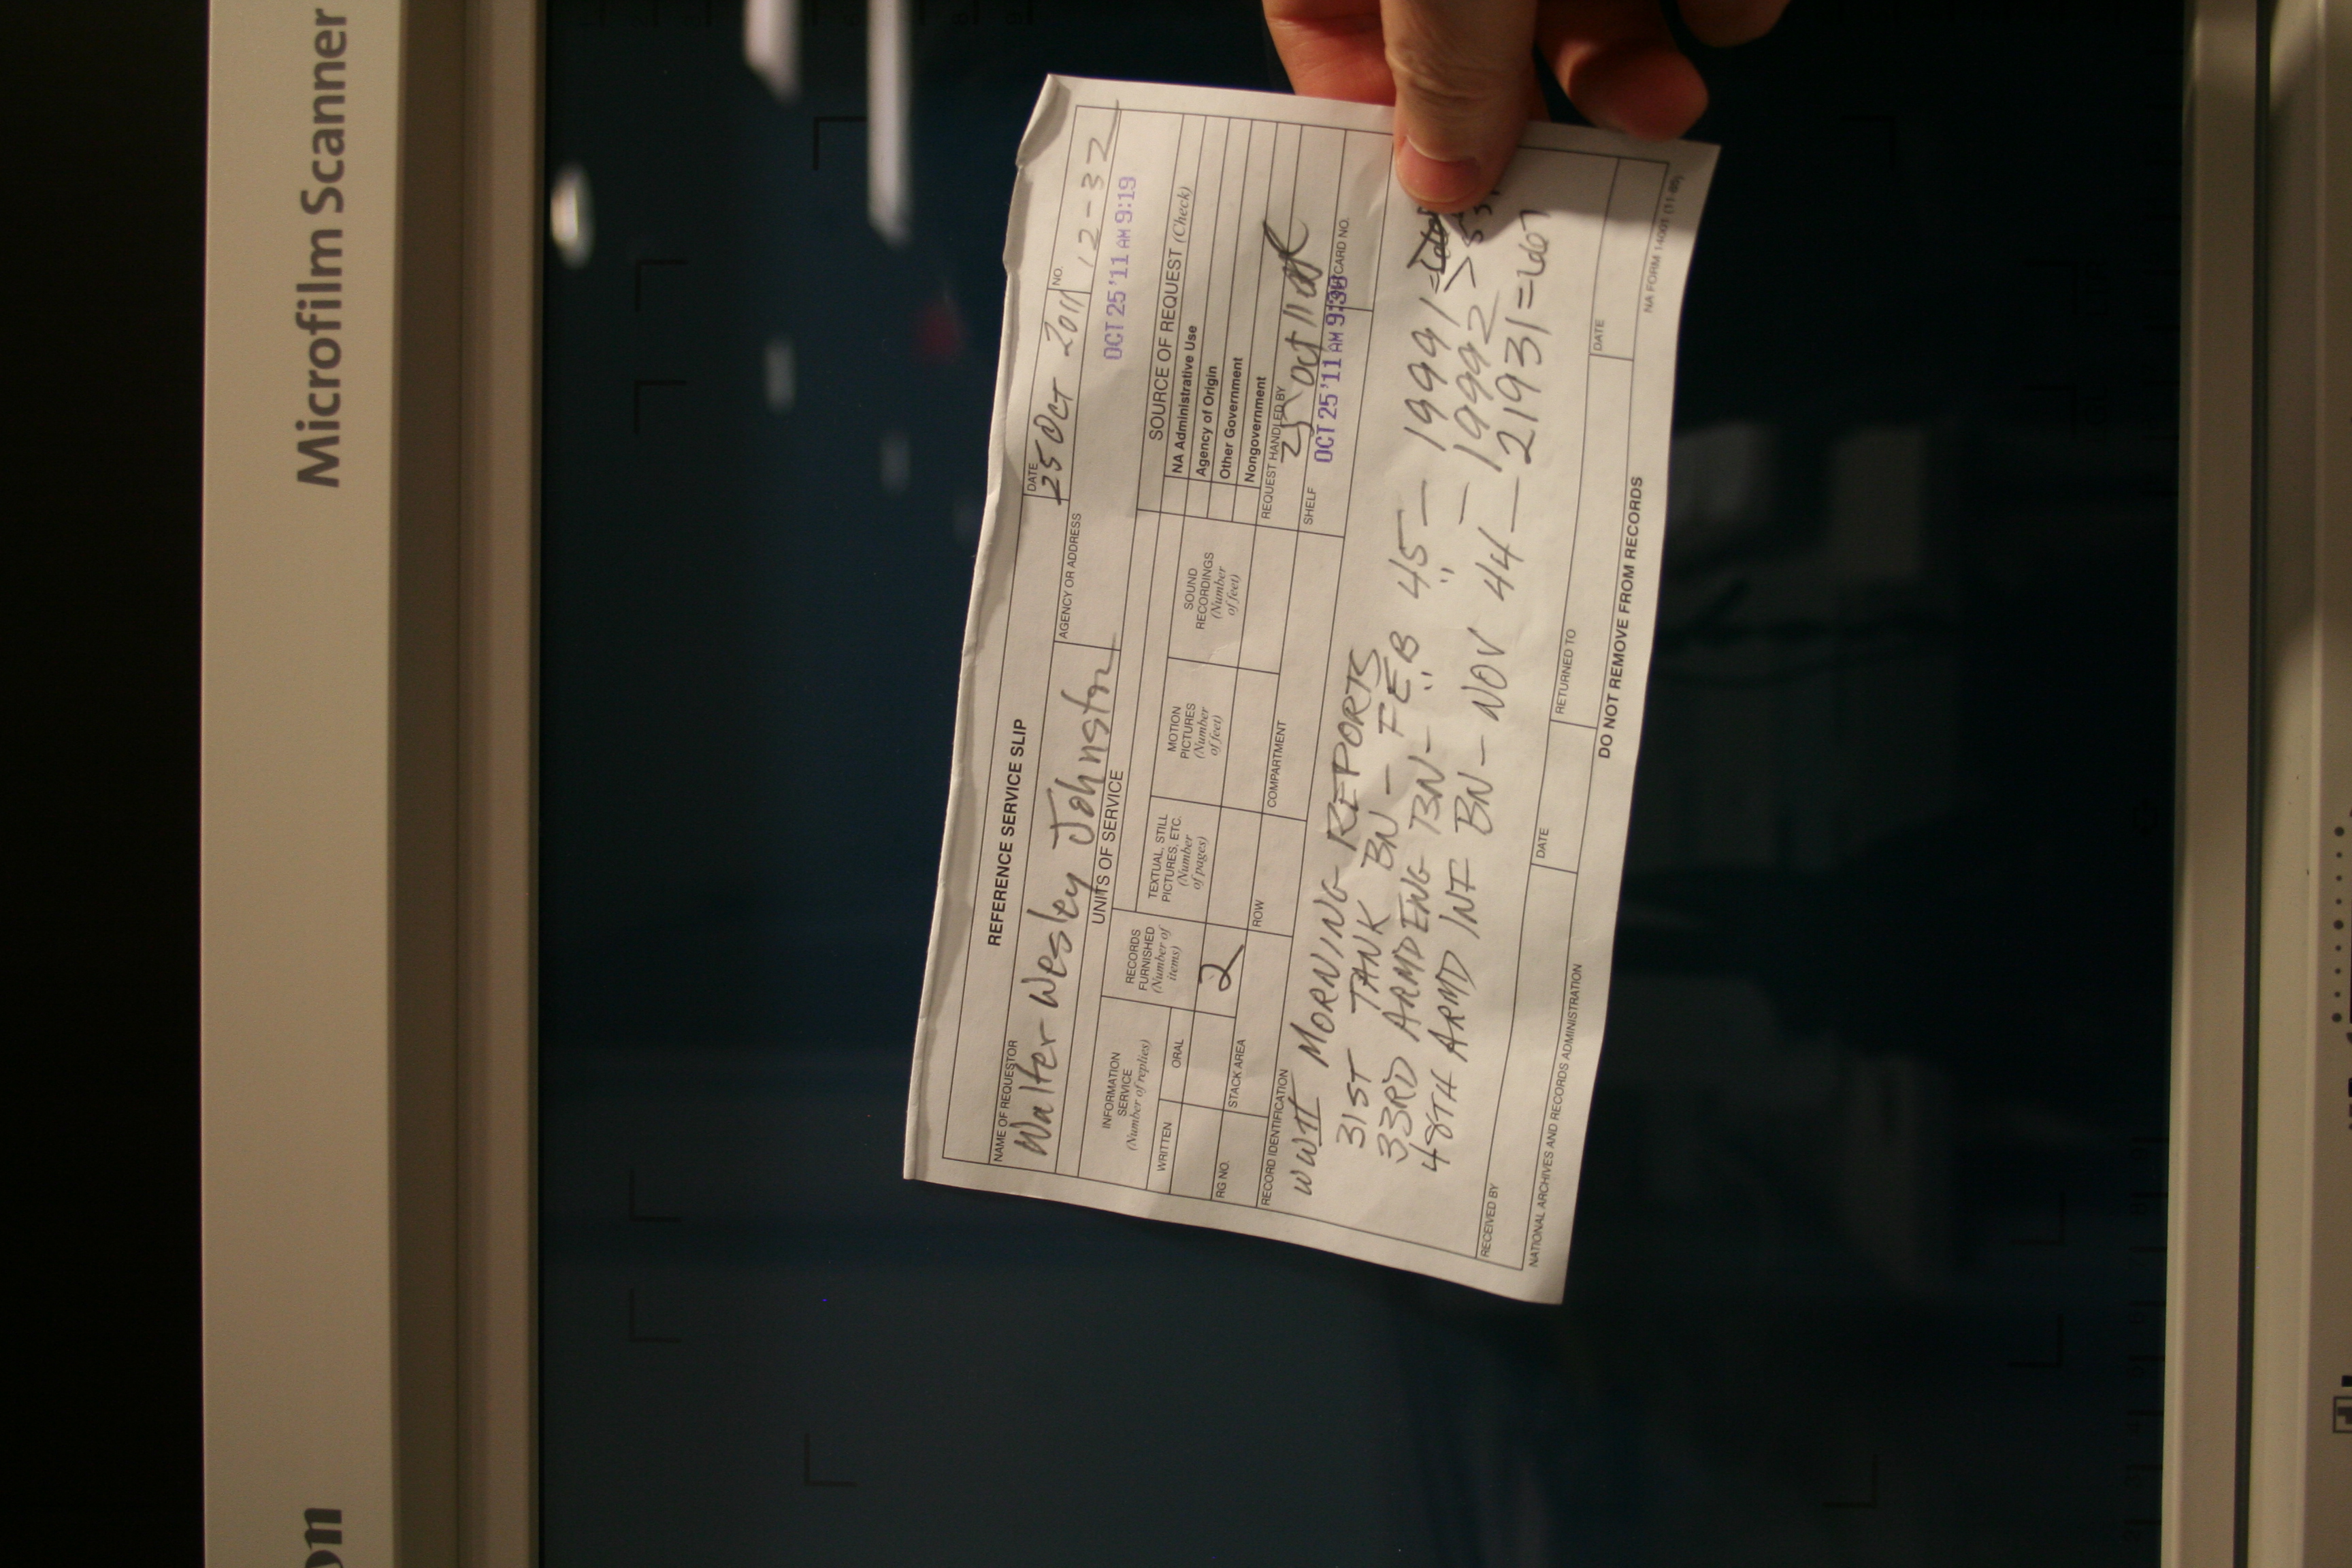 Microfilm Scanner
REFERENCE SERVICE SLIP
NAME OF REQUESTOR
Walter Wesley Johnston
DATE
25 Oct 2011
AGENCY OR ADDRESS
NO.
12-32
UNITS OF SERVICE
OCT 25 '11 AM 9:19
INFORMATION SERVICE (Number of replies)
WRITTEN
ORAL
RECORDS FURNISHED (Number of items)
2
TEXTUAL, STILL PICTURES, ETC. (Number of pages)
MOTION PICTURES (Number of feet)
SOUND RECORDINGS (Number of feet)
SOURCE OF REQUEST (Check)
NA Administrative Use
Agency of Origin
Other Government
Nongovernment
REQUEST HANDLED BY
25 Oct 11
RG NO.
STACK AREA
ROW
COMPARTMENT
SHELF
OCT 25 '11 AM 9:
CARD NO.
RECORD IDENTIFICATION
WWII MORNING REPORTS
31ST TANK BN - FEB 45 - 19991
33RD ARMD ENG BN - " " - 19992
48TH ARMD INF BN - NOV 44 - 21931 = 667
RECEIVED BY
DATE
RETURNED TO
DATE
NATIONAL ARCHIVES AND RECORDS ADMINISTRATION
DO NOT REMOVE FROM RECORDS
NA FORM 14001